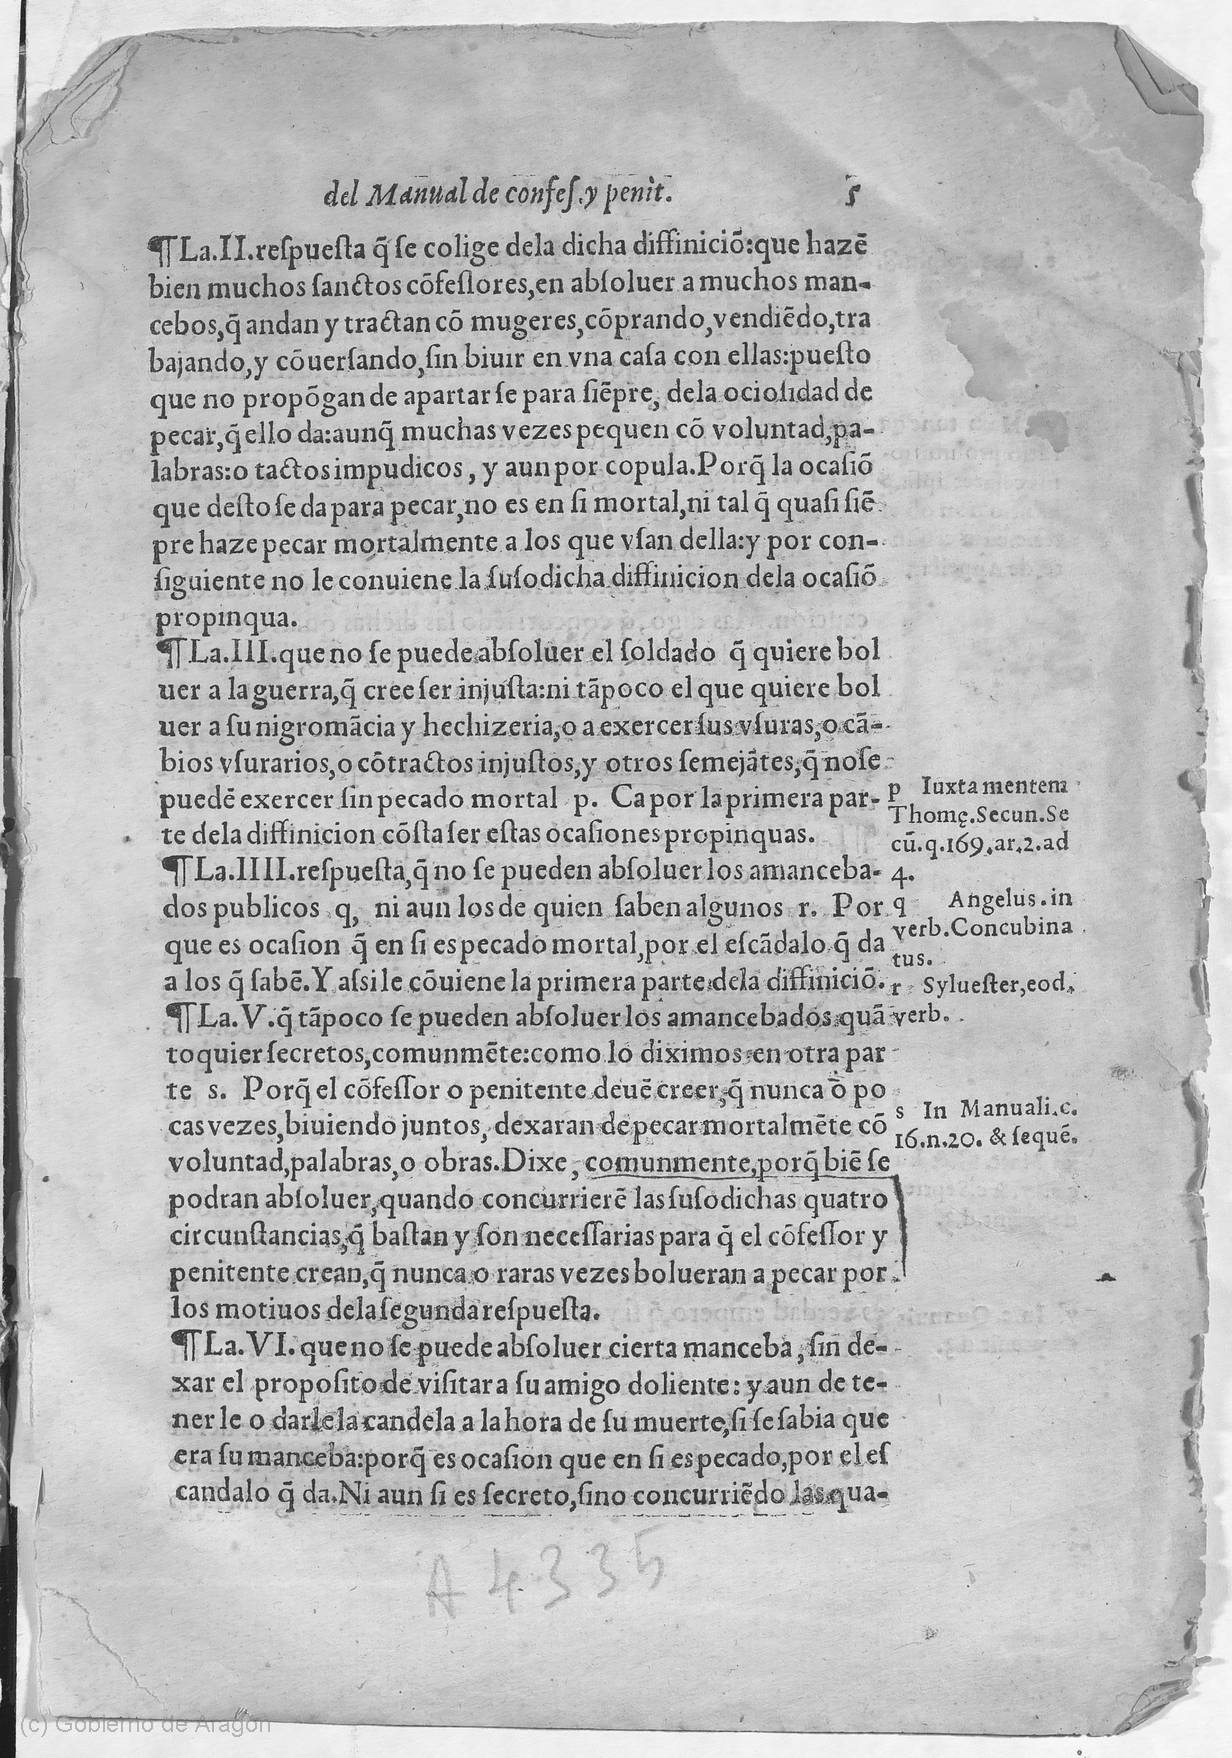 del Manual de confeſ.y penit. 5
¶La.II.reſpueſta q̃ ſe colige dela dicha diffiniciõ:que hazẽ
bien muchos ſanctos cõfeſſores,en abſoluer a muchos man-
cebos,q̃ andan y tractan cõ mugeres,cõprando,vendiẽdo,tra
bajando,y cõuerſando,ſin biuir en vna caſa con ellas:pueſto
que no propõgan de apartar ſe para ſiẽpre, dela ocioſidad de
pecar,q̃ ello da:aunq̃ muchas vezes pequen cõ voluntad,pa-
labras:o tactos impudicos, y aun por copula.Porq̃ la ocaſiõ
que deſto ſe da para pecar,no es en ſi mortal,ni tal q̃ quaſi ſiẽ
pre haze pecar mortalmente a los que vſan della:y por con-
ſiguiente no le conuiene la ſuſodicha diffinicion dela ocaſiõ
propinqua.
¶La.III.que no ſe puede abſoluer el ſoldado q̃ quiere bol
uer a la guerra,q̃ cree ſer injuſta:ni tãpoco el que quiere bol
uer a ſu nigromãcia y hechizeria,o a exercer ſus vſuras,o cã-
bios vſurarios,o cõtractos injuſtos,y otros ſemejãtes,q̃ no ſe
puedẽ exercer ſin pecado mortal p. Ca por la primera par-
te dela diffinicion cõſta ſer eſtas ocaſiones propinquas.
¶La.IIII.reſpueſta,q̃ no ſe pueden abſoluer los amanceba-
dos publicos q, ni aun los de quien ſaben algunos r. Por
que es ocaſion q̃ en ſi es pecado mortal,por el eſcãdalo q̃ da
a los q̃ ſabẽ.Y aſsi le cõuiene la primera parte dela diffiniciõ.
¶La.V.q̃ tãpoco ſe pueden abſoluer los amancebados quã
to quier ſecretos,comunmẽte:como lo diximos en otra par
te s. Porq̃ el cõfeſſor o penitente deuẽ creer,q̃ nunca õ po
cas vezes,biuiendo juntos, dexaran de pecar mortalmẽte cõ
voluntad,palabras,o obras.Dixe, comunmente,porq̃ biẽ ſe
podran abſoluer,quando concurrierẽ las ſuſodichas quatro
circunſtancias,q̃ baſtan y ſon neceſſarias para q̃ el cõfeſſor y
penitente crean,q̃ nunca o raras vezes bolueran a pecar por
los motiuos dela ſegunda reſpueſta.
¶La.VI.que no ſe puede abſoluer cierta manceba, ſin de-
xar el propoſito de viſitar a ſu amigo doliente: y aun de te-
ner le o darle la candela a la hora de ſu muerte,ſi ſe ſabia que
era ſu manceba:porq̃ es ocaſion que en ſi es pecado,por el eſ
candalo q̃ da.Ni aun ſi es ſecreto,ſino concurriẽdo las qua-
p Iuxta mentem
Thomę.Secun.Se
cũ.q.169.ar.2.ad
4.
q Angelus.in
verb.Concubina
tus.
r Sylueſter,eod.
verb.
s In Manuali.c.
16.n.20. & ſequẽ.
A 4335
(c) Gobierno de Aragón